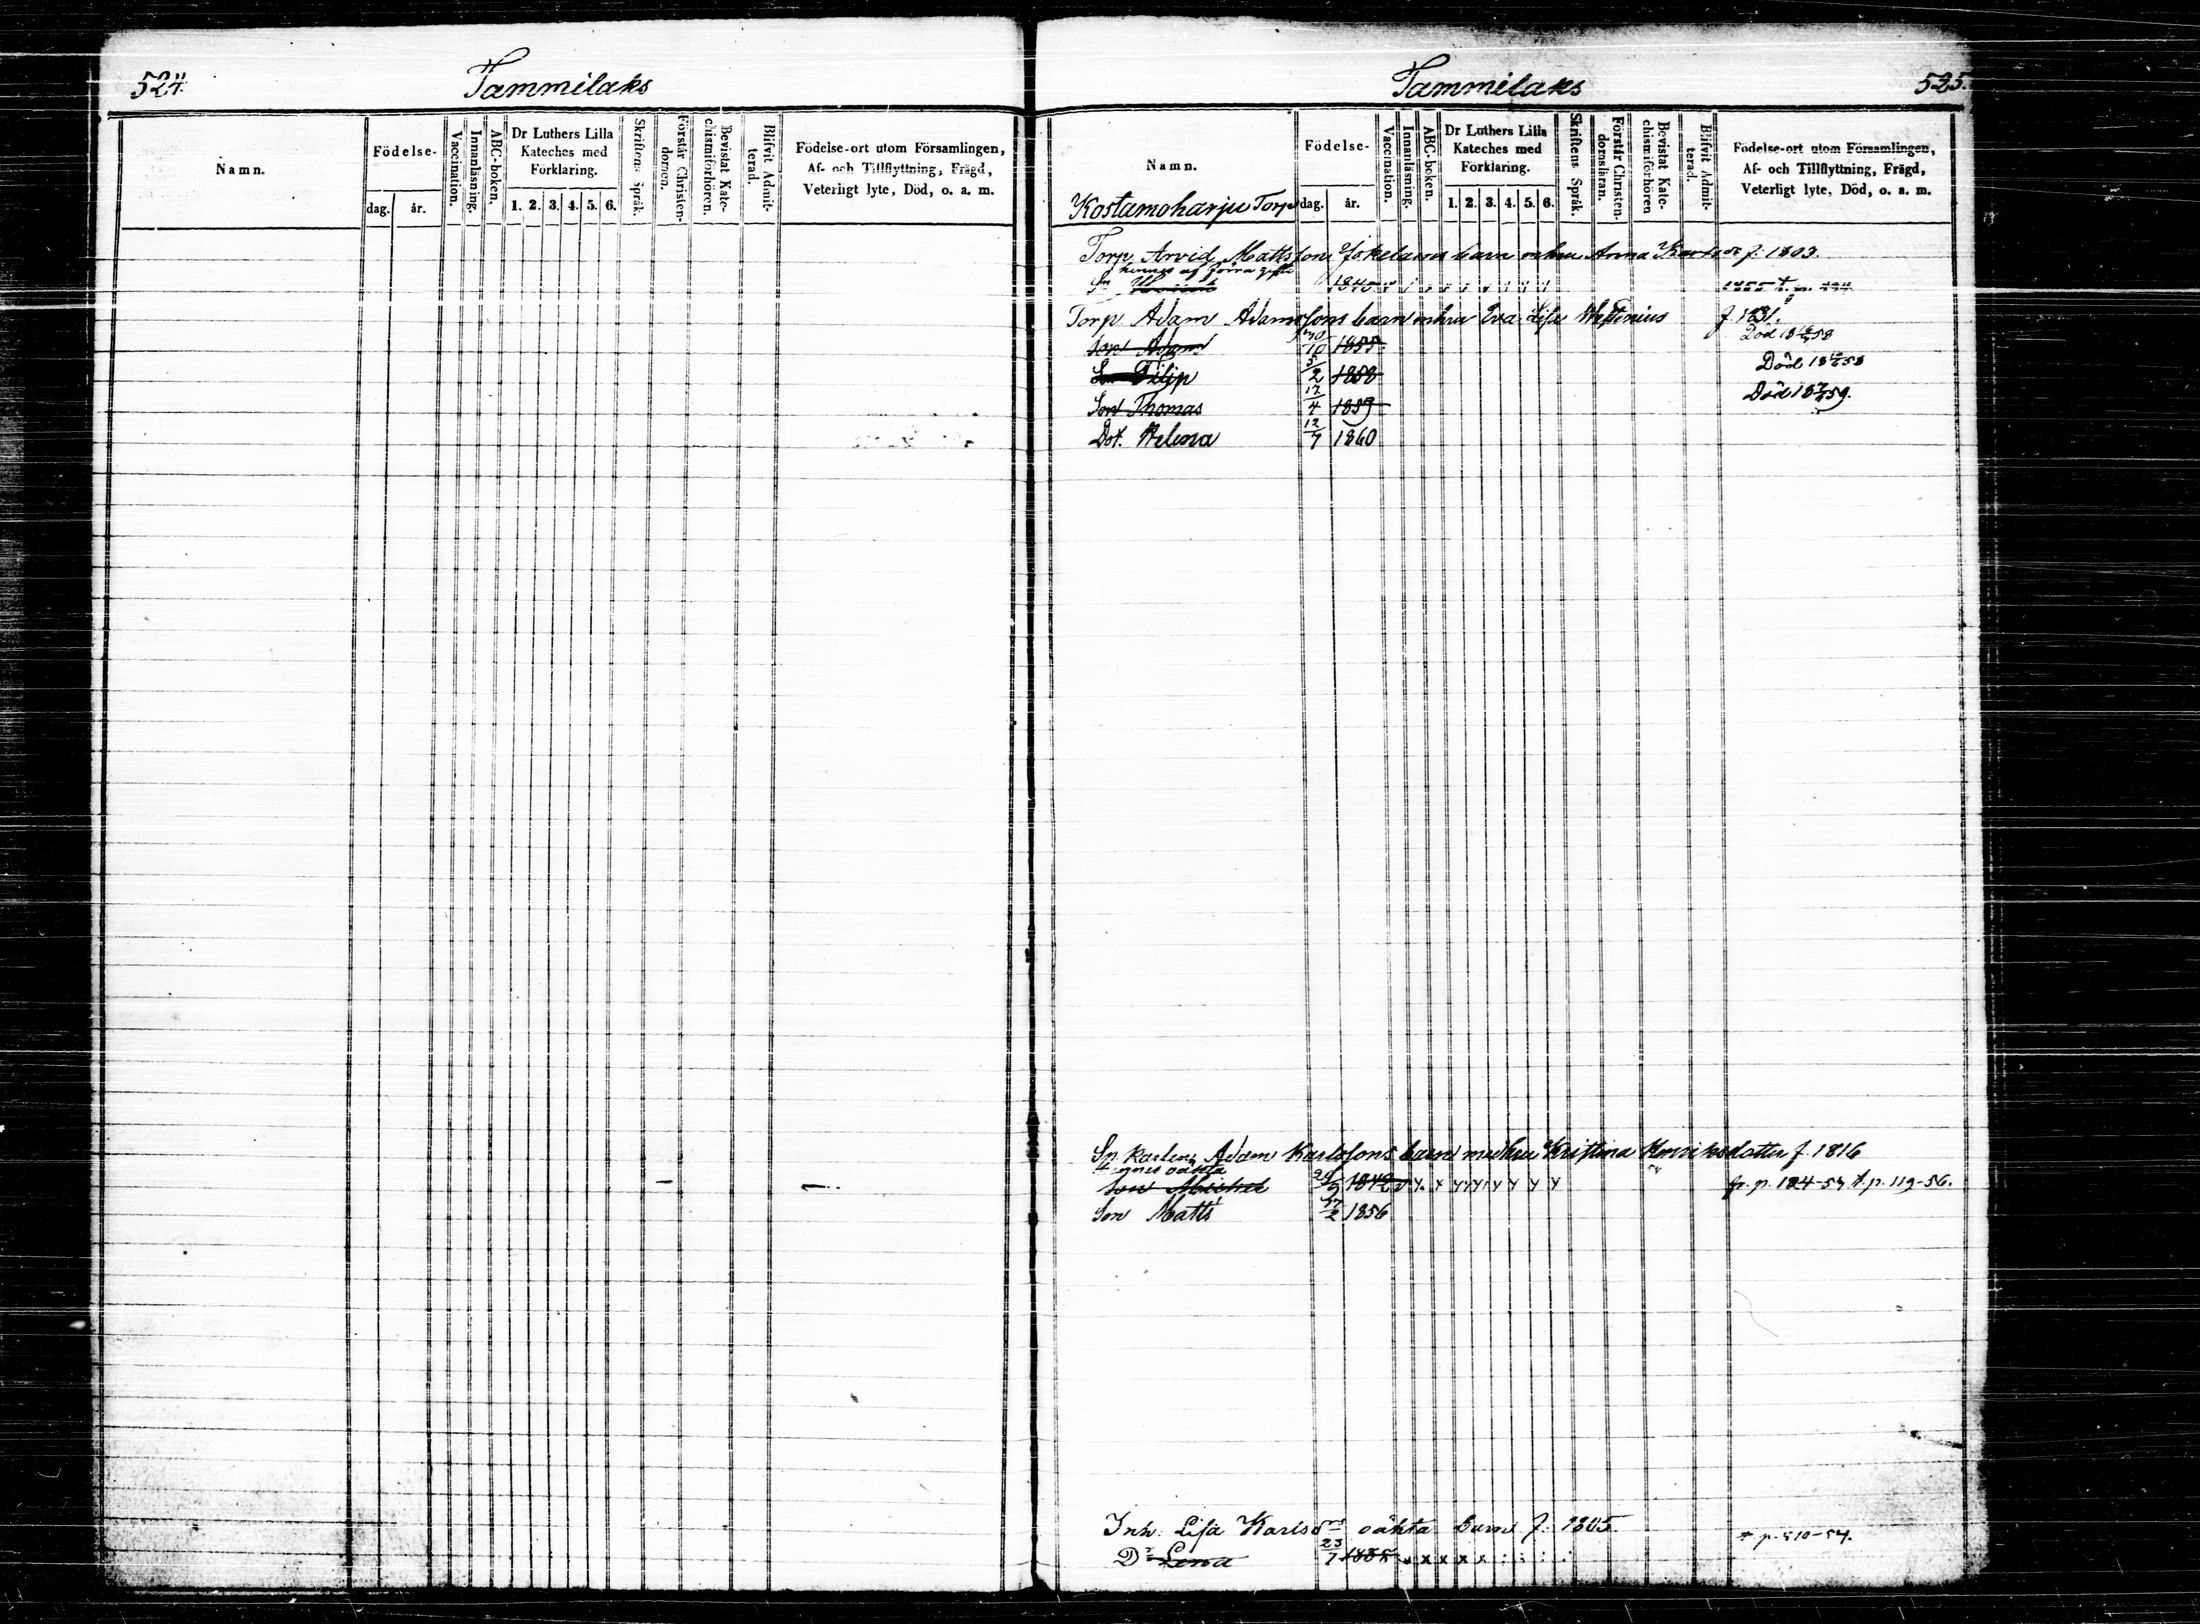 524.
Tammilaks
Namn.
Födelse-
dag.
år.
Vaccination.
Innanläsning.
ABC-boken.
Dr Luthers Lilla
Kateches med
Förklaring.
1. 2. 3. 4. 5. 6.
Skriftens Språk.
Förstår Christen-
domen.
Bevistat Kate-
chismiförhören.
Blifvit Admit-
terad.
Födelse-ort utom Församlingen,
Af- och Tillflyttning, Frägd,
Veterligt lyte, Död, o. a. m.
Tammilaks
525.
Namn.
Kostamoharju Torp
Födelse-
dag.
år.
Vaccination.
Innanläsning.
ABC-boken.
Dr Luthers Lilla
Kateches med
Förklaring.
1. 2. 3. 4. 5. 6.
Skriftens Språk.
Förstår Christen-
domsläran.
Bevistat Kate-
chismiförhören
Blifvit Admit-
terad.
Födelse-ort utom Församlingen,
Af- och Tillflyttning, Frägd,
Veterligt lyte, Död, o. a. m.
Torp. Arvid Mattsson barn Anna f. 1803.
hennes af förra gifte
1840
Torp. Adam Adamssons barn m hu Eva Lisa f. 1831.
Son Adam 10 1855 Död 1858
Son Filip 5/2 1858 Död 1858
Son Thomas 17/4 1859 Död 1859.
Dot. Helena 12/7 1860
Adam Karlssons barn med hu Kristina Henriksdotter f. 1816
Son Michel 29/9 1842 fr. p. 124-54 t. p. 119-56.
Son Matts 1856
Inh. Lisa Karlsd. oäkta barn f. 1805.
Dr Lena 23/7 p. 510-54.